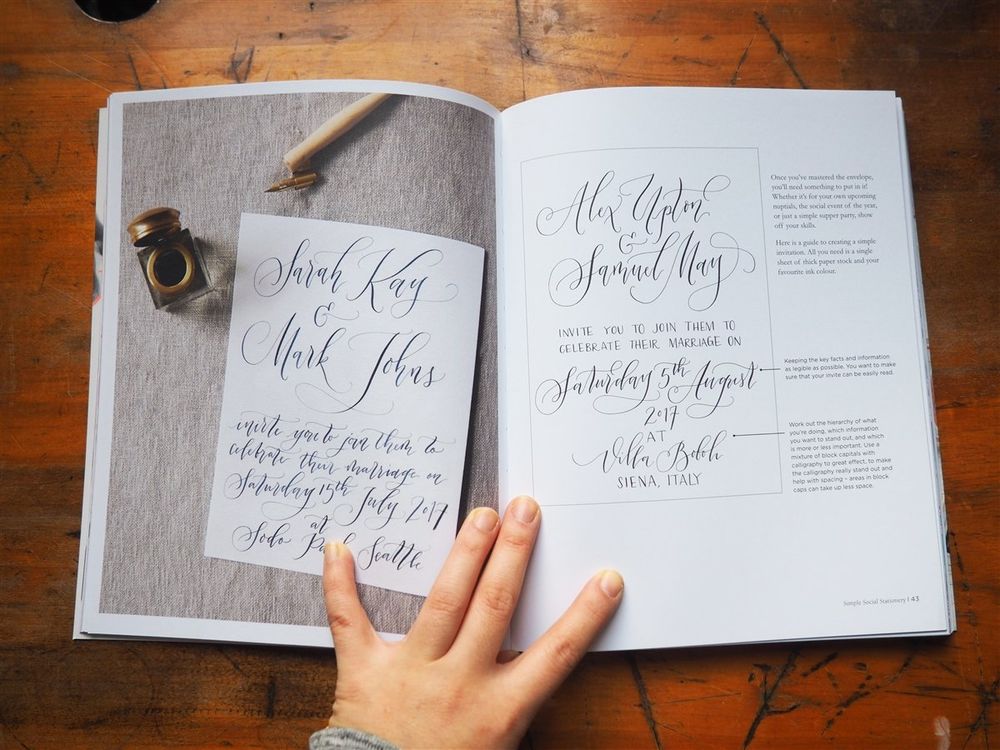 Sarah Kay
&
Mark Johns
invite you to join them to
celebrate their marriage on
Saturday 15th July 2017
at
Sodo Seattle
Alex Upton
&
Samuel May
INVITE YOU TO JOIN THEM TO
CELEBRATE THEIR MARRIAGE ON
Saturday 5th August
2017
AT
Villa Bolob
SIENA, ITALY
Once you've mastered the envelope,
you'll need something to put in it!
Whether it's for your own upcoming
nuptials, the social event of the year,
or just a simple supper party, show
off your skills.
Here is a guide to creating a simple
invitation. All you need is a single
sheet of thick paper stock and your
favourite ink colour.
Keeping the key facts and information
as legible as possible. You want to make
sure that your invite can be easily read.
Work out the hierarchy of what
you're doing, which information
you want to stand out, and which
is more or less important. Use a
mixture of block capitals with
calligraphy to great effect, to make
the calligraphy really stand out and
help with spacing – areas in block
caps can take up less space.
Simple Social Stationery | 43